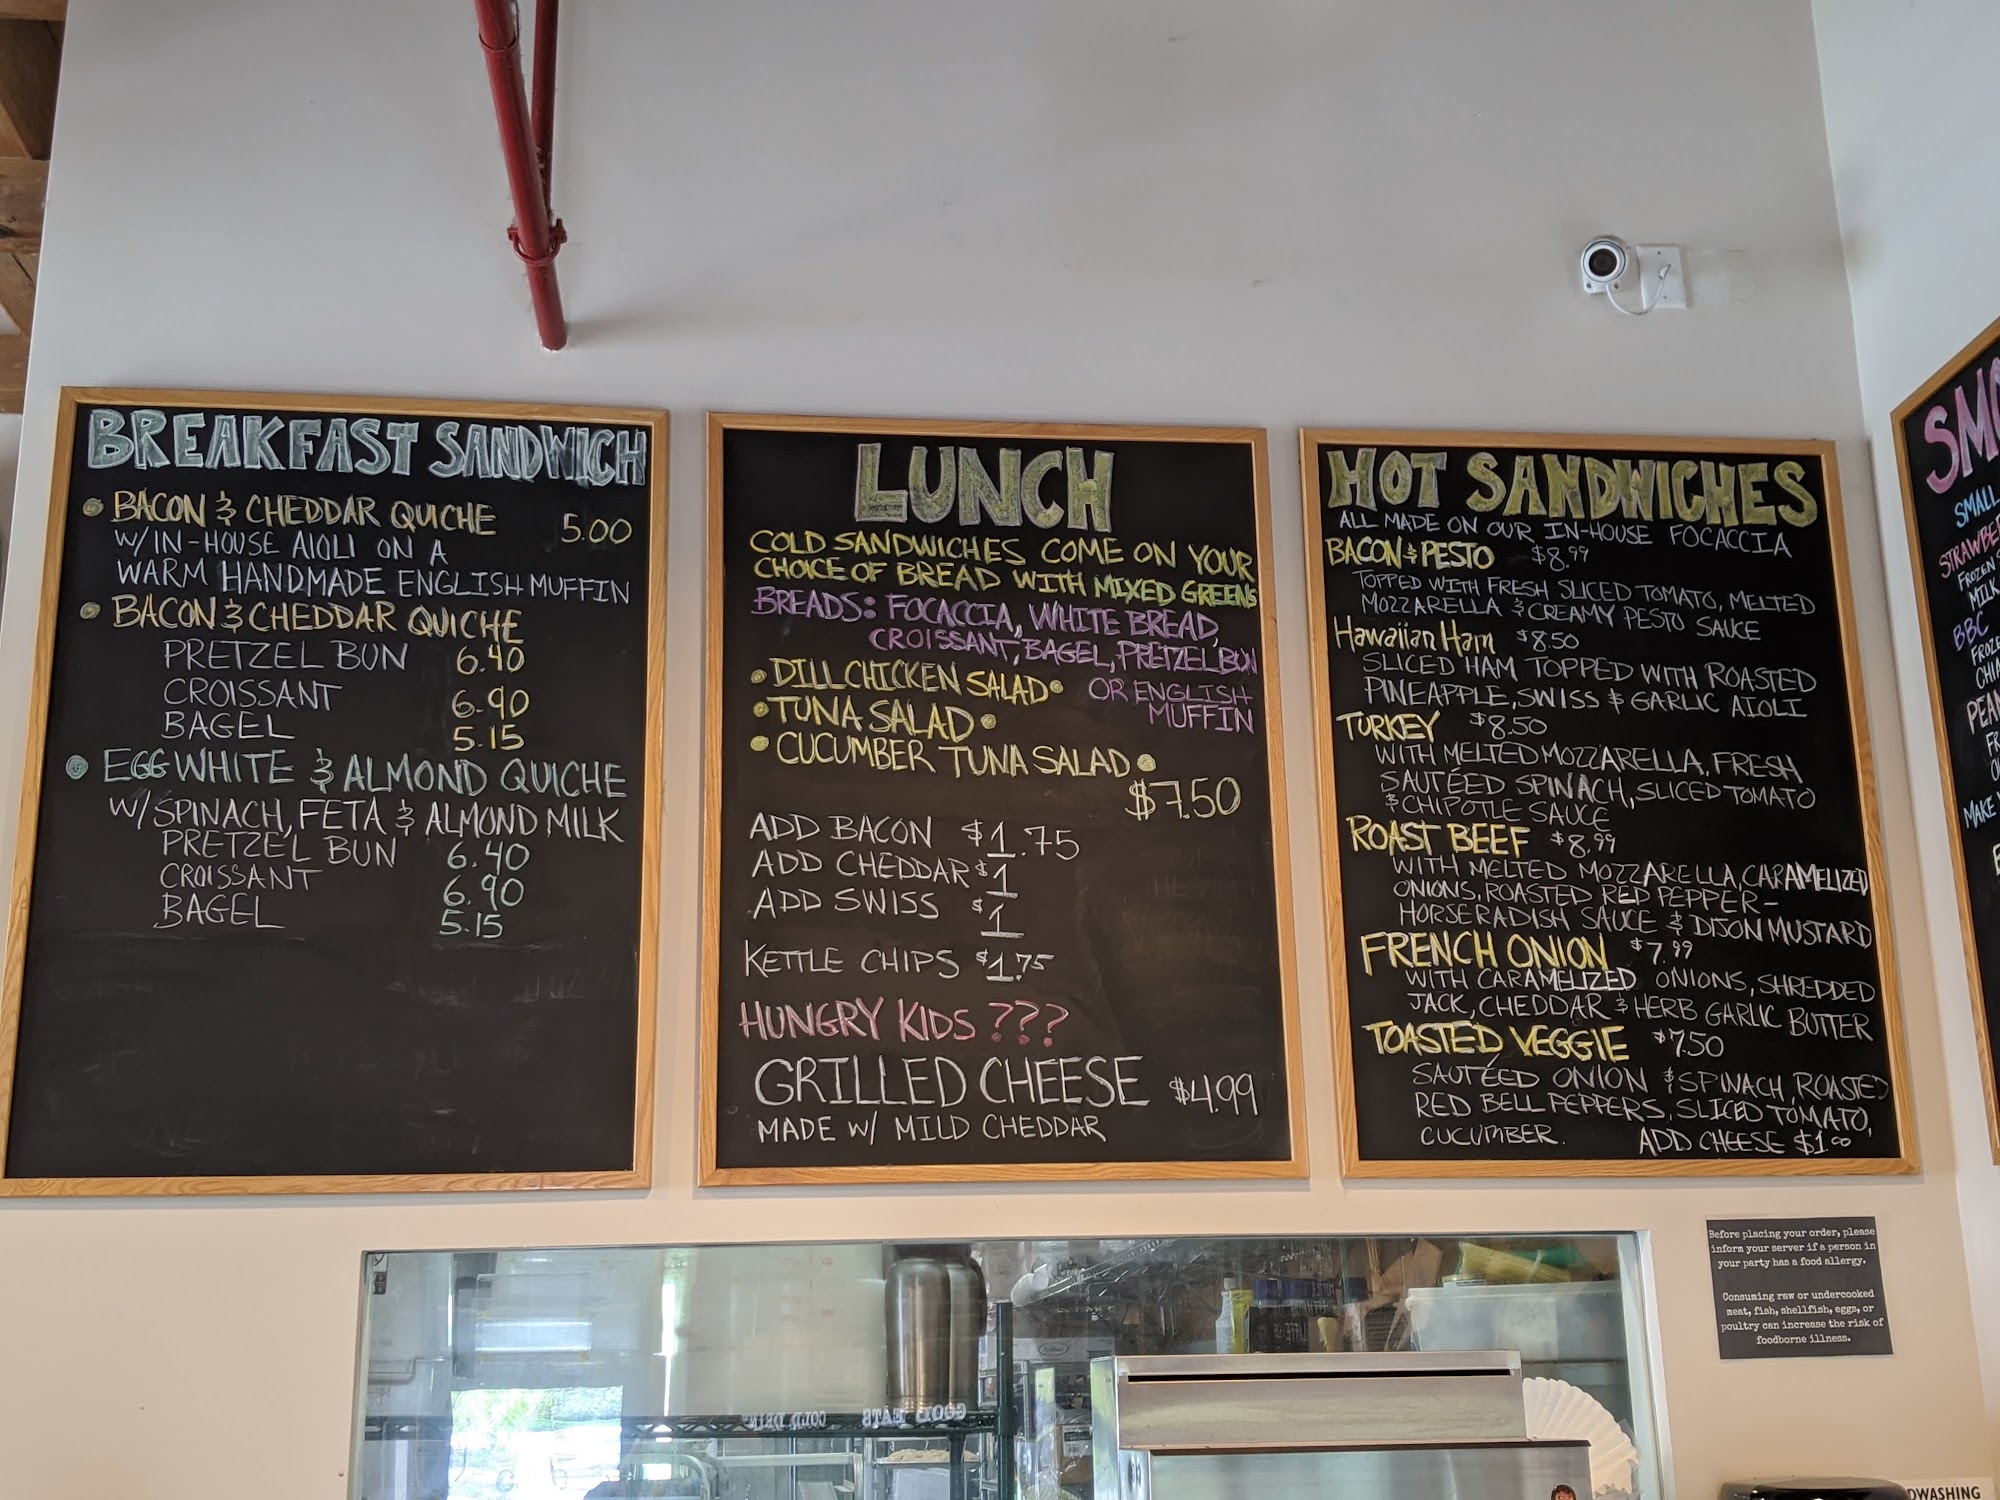 BREAKFAST SANDWICH
BACON & CHEDDAR QUICHE 5.00
W/IN-HOUSE AIOLI ON A
WARM HANDMADE ENGLISH MUFFIN
BACON & CHEDDAR QUICHE
PRETZEL BUN 6.40
CROISSANT 6.90
BAGEL 5.15
EGG WHITE & ALMOND QUICHE
W/SPINACH, FETA & ALMOND MILK
PRETZEL BUN 6.40
CROISSANT 6.90
BAGEL 5.15
LUNCH
COLD SANDWICHES COME ON YOUR
CHOICE OF BREAD WITH MIXED GREENS
BREADS: FOCACCIA, WHITE BREAD,
CROISSANT, BAGEL, PRETZEL BUN
OR ENGLISH
MUFFIN
DILL CHICKEN SALAD
TUNA SALAD
CUCUMBER TUNA SALAD
$7.50
ADD BACON $1.75
ADD CHEDDAR $1
ADD SWISS $1
KETTLE CHIPS $1.75
HUNGRY KIDS ???
GRILLED CHEESE $4.99
MADE W/ MILD CHEDDAR
HOT SANDWICHES
ALL MADE ON OUR IN-HOUSE FOCACCIA
BACON & PESTO $8.99
TOPPED WITH FRESH SLICED TOMATO, MELTED
MOZZARELLA & CREAMY PESTO SAUCE
Hawaiian Ham $8.50
SLICED HAM TOPPED WITH ROASTED
PINEAPPLE, SWISS & GARLIC AIOLI
TURKEY $8.50
WITH MELTED MOZZARELLA, FRESH
SAUTÉED SPINACH, SLICED TOMATO
& CHIPOTLE SAUCE
ROAST BEEF $8.99
WITH MELTED MOZZARELLA, CARAMELIZED
ONIONS, ROASTED RED PEPPER-
HORSERADISH SAUCE & DIJON MUSTARD
FRENCH ONION $7.99
WITH CARAMELIZED ONIONS, SHREDDED
JACK, CHEDDAR & HERB GARLIC BUTTER
TOASTED VEGGIE $7.50
SAUTÉED ONION & SPINACH, ROASTED
RED BELL PEPPERS, SLICED TOMATO,
CUCUMBER. ADD CHEESE $1.00
SMO
SMALL
STRAWBE
FROZEN
MILK
BBC
FROZE
CHIA
PEAN
FR
MAKE
Before placing your order, please
inform your server if a person in
your party has a food allergy.
Consuming raw or undercooked
meat, fish, shellfish, eggs, or
poultry can increase the risk of
foodborne illness.
GOOD EATS COLD DRIN
DWASHING